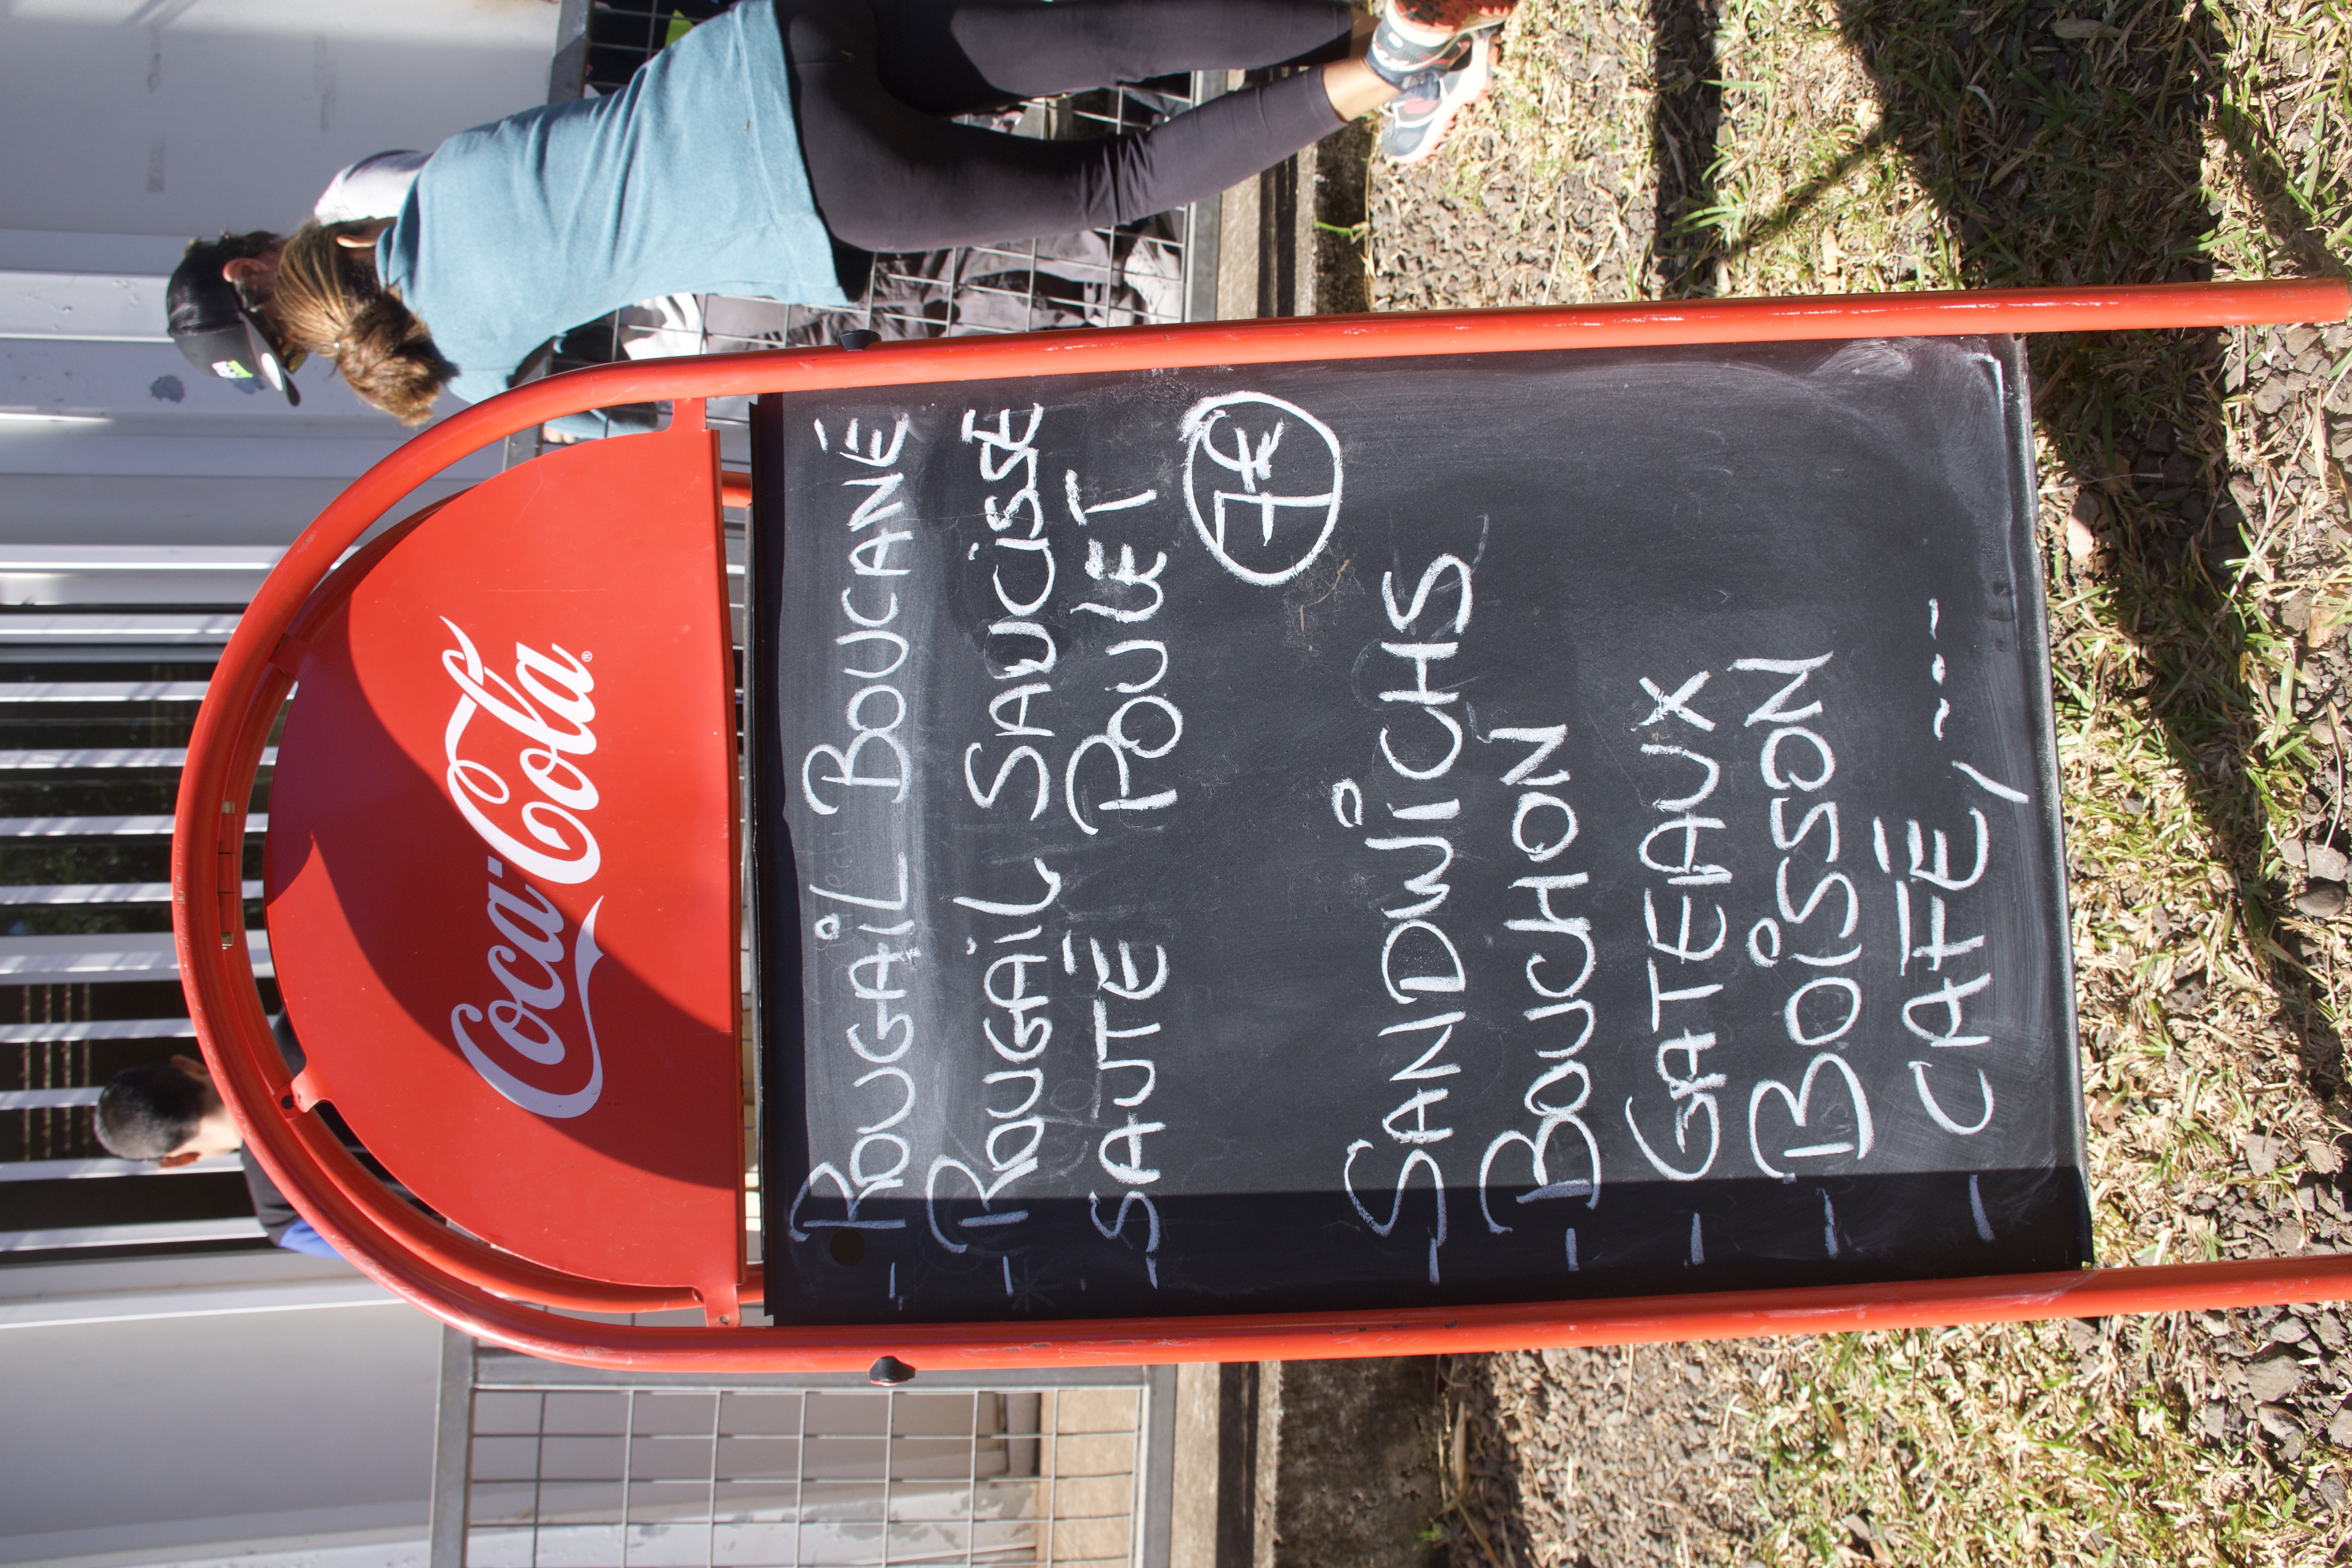 Coca-Cola®
- ROUGAiL BOUCANÉ
- ROUGAiL SAUCiSSE
- SAUTÉ POULET
7€
- SANDWiCHS
- BOUCHON
- GATEAUX
- BOiSSON
- CAFÉ, ...